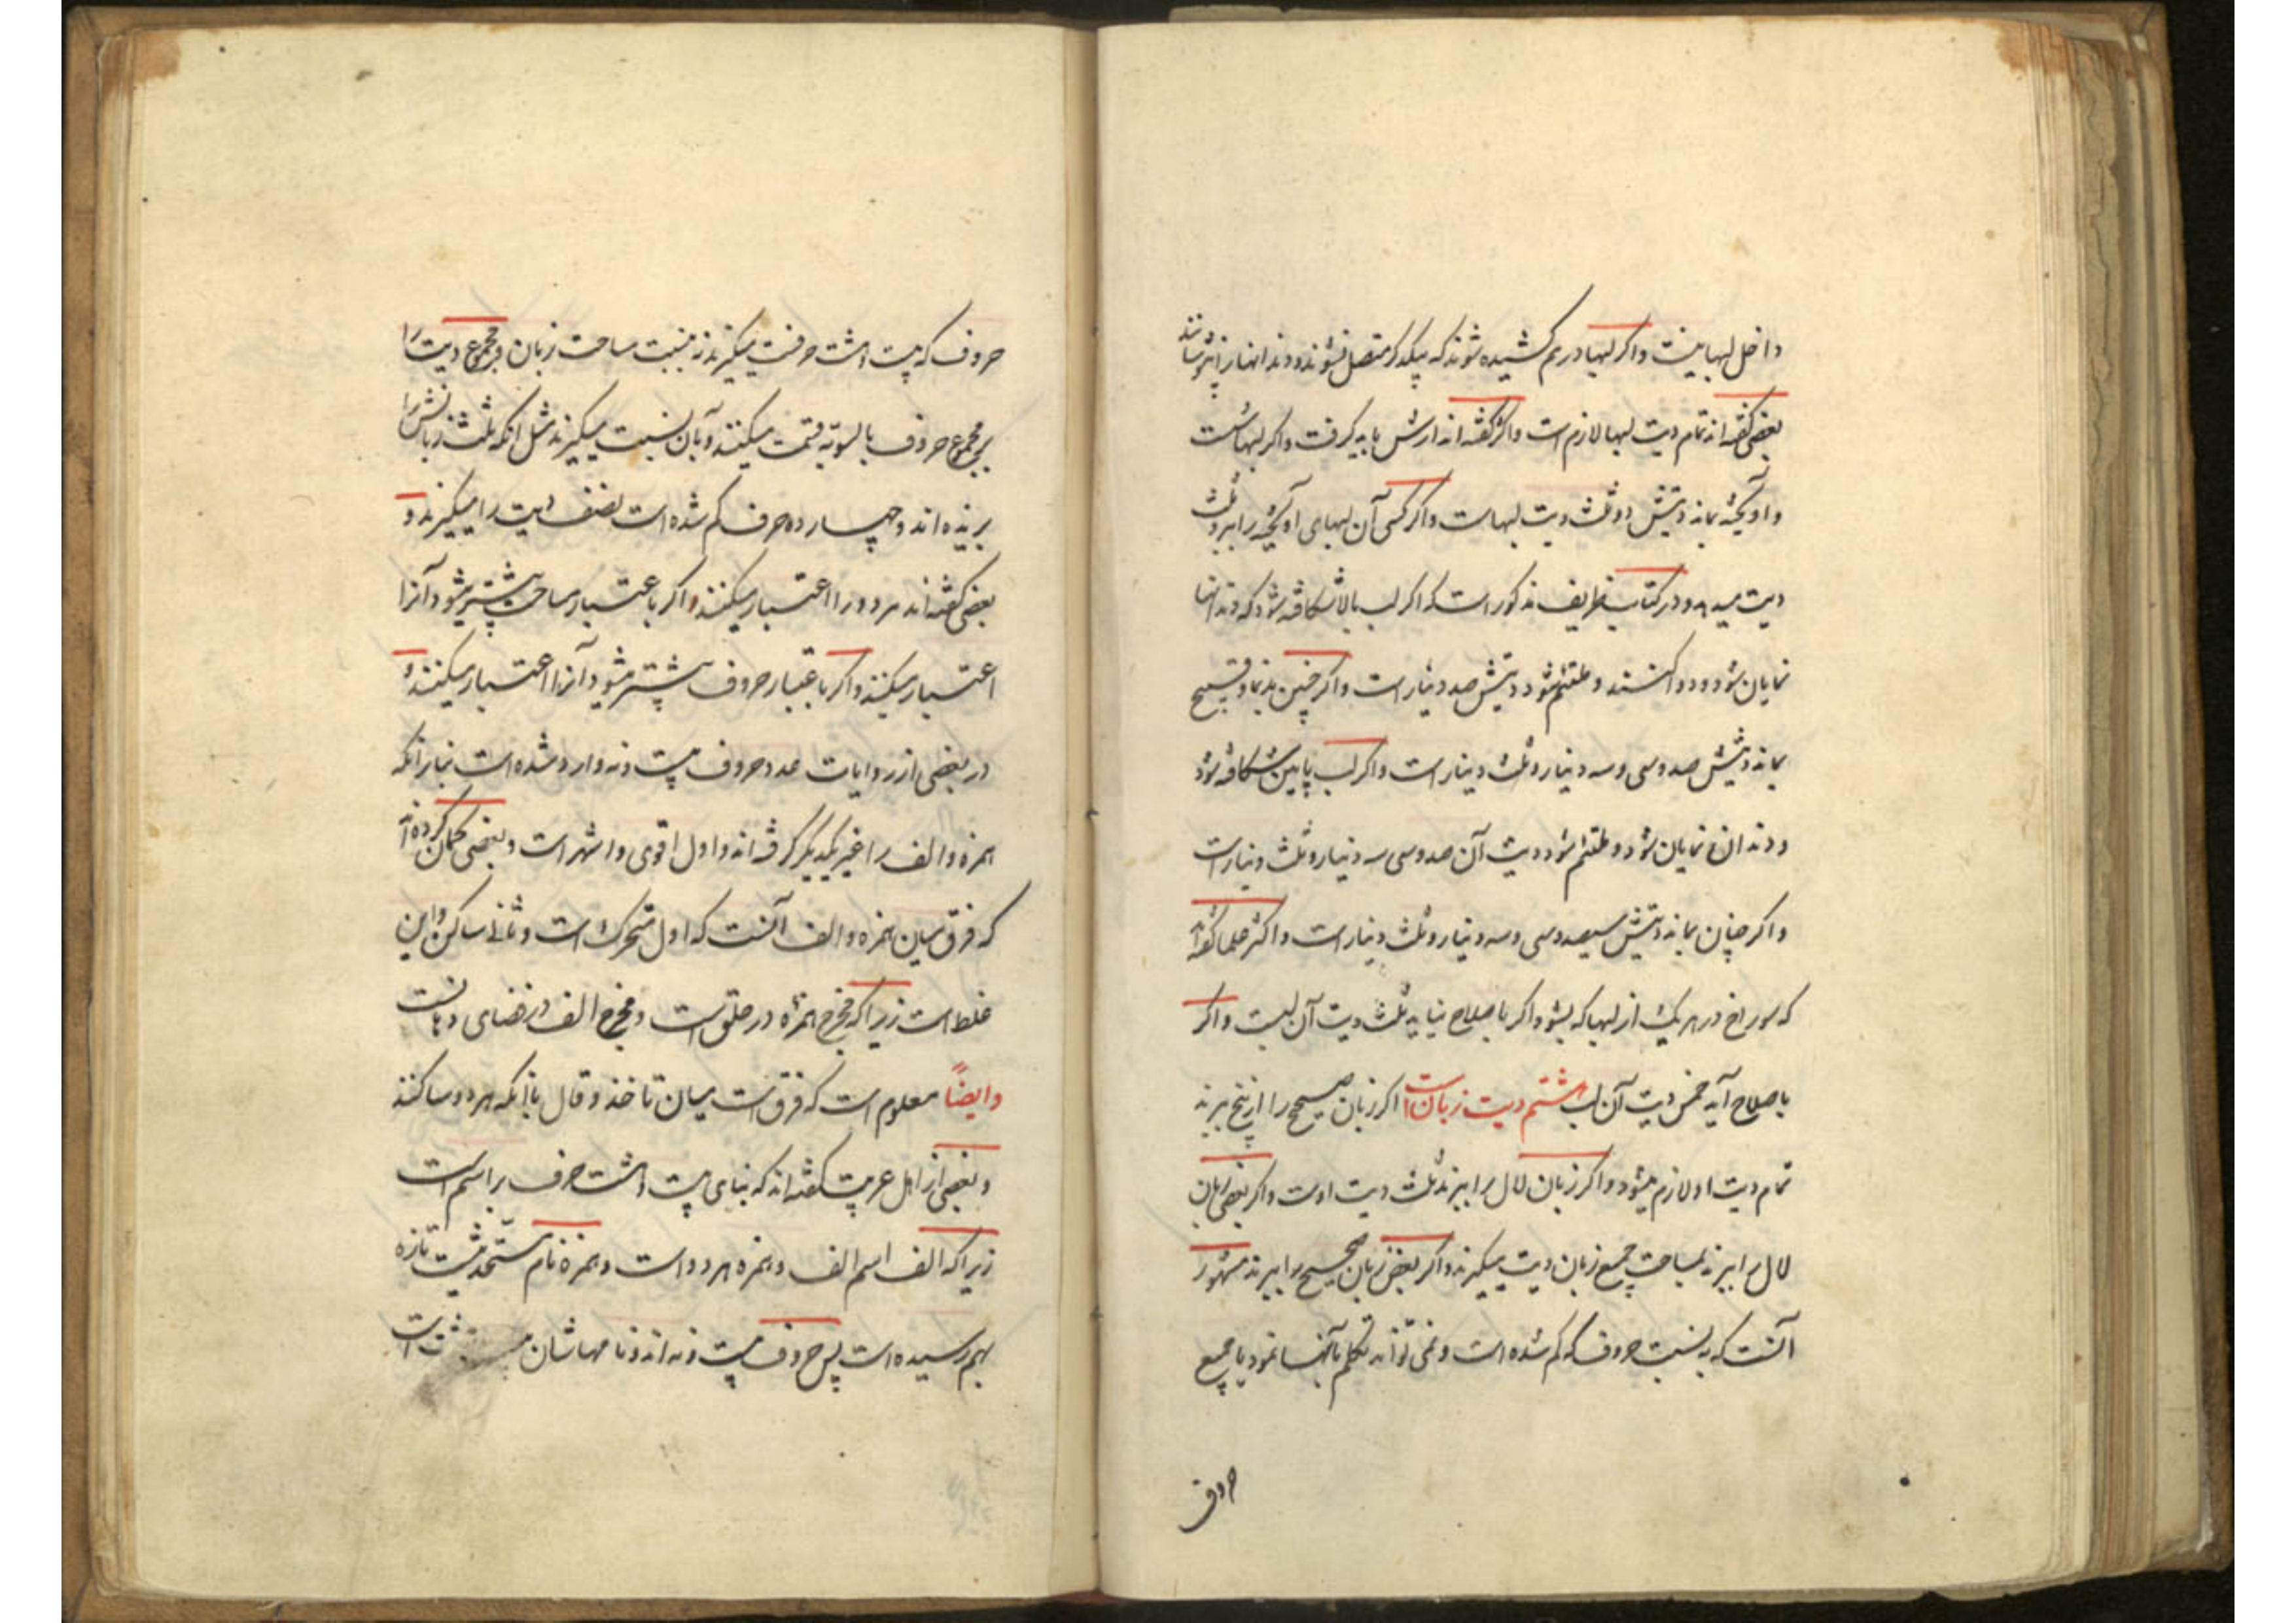 داخل لبها نیست و اگر لبها درهم کشیده شوند که بیکدیگر متصل نشوند و دندانها را نپوشانند
بعضی گفته‌اند تمام دیت لبها لازم است و اکثر گفته‌اند ارش باید گرفت و اگر لبها سست
و آویخته بماند دیتش دو ثلث دیت لبهاست و اگر کسی آن لبهای آویخته را ببرد ثلث
دیت میدهد و در کتاب ظریف مذکور است که اگر لب بالا شکافته شود که دندانها
نمایان شود و دوا کنند و ملتئم شود دیتش صد دینار است و اگر چنین بدنما و قبیح
بماند دیتش صد و سی و سه دینار و ثلث دینار است و اگر لب پایین شکافته شود
و دندان نمایان شود و ملتئم شود دیت آن صد و سی سه دینار و ثلث دینار است
و اگر چنان بماند دیتش سیصد و سی و سه دینار و ثلث دینار است و اکثر علما گفته‌اند
که سوراخ در هر یک از لبها که بشود اگر باصلاح نیاید ثلث دیت آن لبست و اگر
باصلاح آید خمس دیت آن لب هشتم دیت زبان است اگر زبان صحیح را از بیخ ببرند
تمام دیت او لازم میشود و اگر زبان لال را ببرند ثلث دیت اوست و اگر بعضی زبان
لال را ببرند بمساحت جمیع زبان دیت میگیرند و اگر بعض زبان صحیح را ببرند مشهور
آنست که به نسبت حروف که کم شده است و نمی تواند تکلم بآنها نمود با جمیع
حروف
حروف که بیست و هشت حرفست میگیرند نه بنسبت مساحت زبان و مجموع دیت را
بر مجموع حروف بالسویه قسمت میکنند و بآن نسبت میگیرند مثل آنکه ثلث زبانش را
بریده‌اند و چهارده حرف کم شده است نصف دیت را میگیرند و
بعضی گفته‌اند هر دو را اعتبار میکنند و اگر باعتبار مساحت بیشتر میشود آنرا
اعتبار میکنند و اگر باعتبار حروف بیشتر میشود آنرا اعتبار میکنند و
در بعضی از روایات عدد حروف بیست و نه وارد شده است بنابر آنکه
همزه و الف را غیر یکدیگر گرفته‌اند و اول اقوی و اشهر است و بعضی گمان کرده‌اند
که فرق میان همزه و الف آنست که اول متحرک است و ثانی ساکن و این
غلط است زیرا که مخرج همزه در حلق است و مخرج الف در فضای دهانست
و ایضاً معلوم است که فرق است میان تاخذ و قال با آنکه هر دو ساکنند
و بعضی از اهل عربیت گفته‌اند که بنای بیست و هشت حرف بر اسم است
زیرا که الف اسم الف و همزه هر دو است و همزه نام مستحدثیست تازه
بهم رسیده است پس حروف بیست و نه‌اند و نامهاشان بیست و هشت است